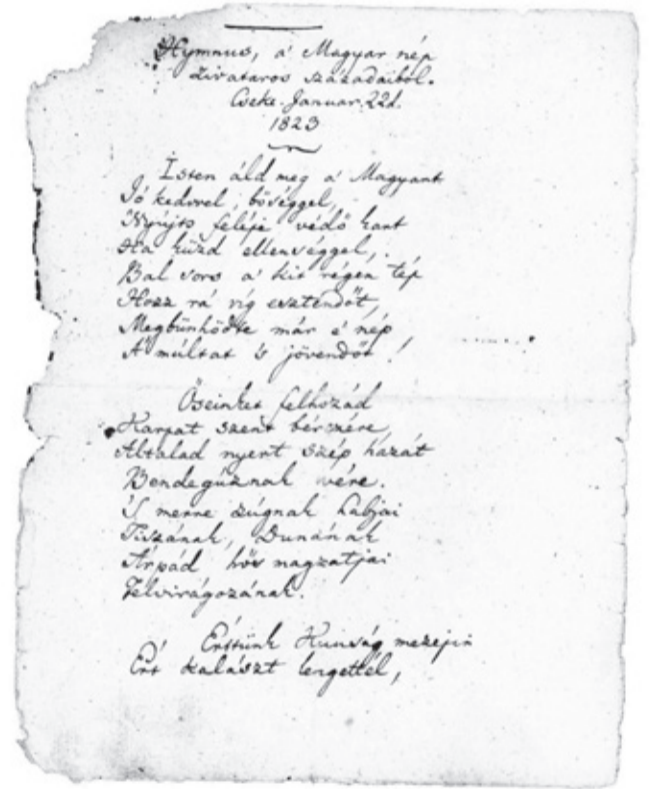 Hymnus, a' Magyar nép
zivataros századaiból.
Cseke. Januar. 22d.
1823
Isten áld meg a' Magyart
Jó kedvvel, bőséggel,
Nyújts feléje védő kart
Ha küzd ellenséggel,
Bal sors a' kit régen tép
Hozz rá víg esztendőt,
Megbűnhődte már e' nép
A' múltat 's jövendőt!
Őseinket felhozád
Karpat szent bérczére
Általad nyert szép hazát
Bendegúznak vére.
'S merre zúgnak habjai
Tiszának, Dunának
Árpád hős magzatjai
Felvirágozának.
Értünk Kunság mezejin
Ért kalászt lengettél,